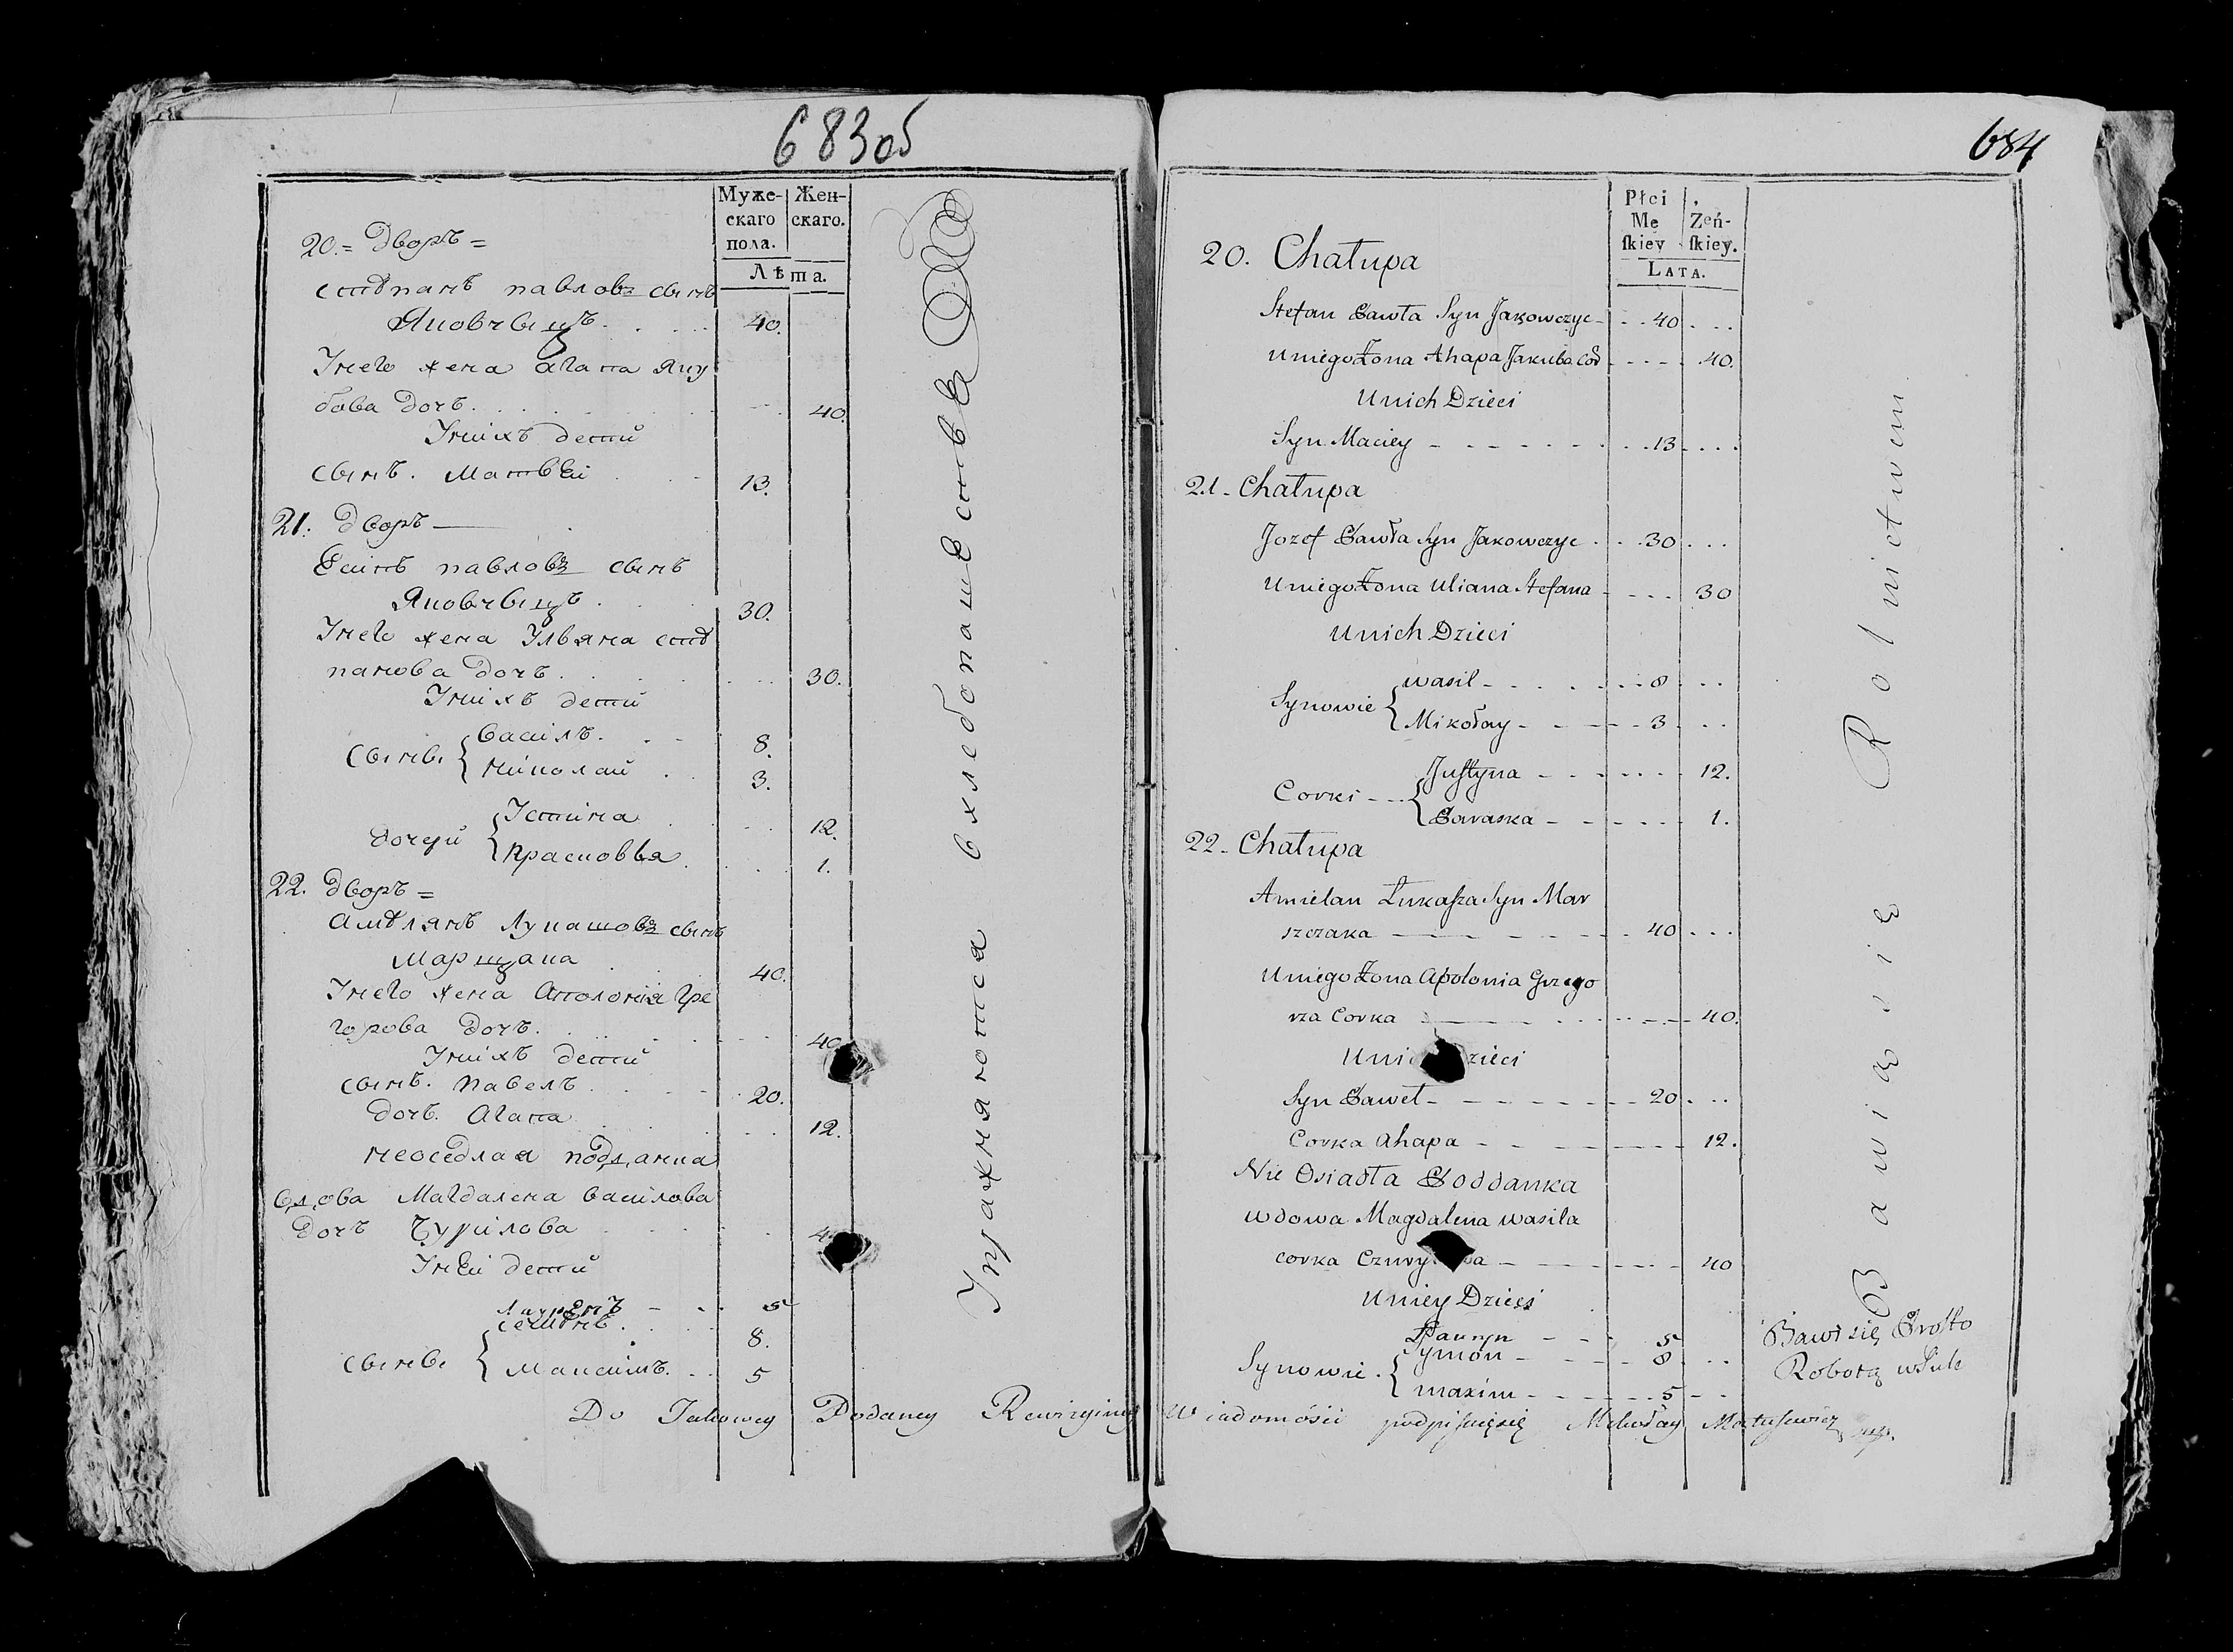 683об
Муже-
скаго
пола.
Жен-
скаго.
Лѣта.
20.= Дворъ =
стѣпанъ павловъ сынъ
Яковчыцъ. 40.
Унего жена агапа яку
бова дочь. 40.
Унихъ дети
сынъ. Матвѣи 13.
21. Дворъ
Есипъ павловъ сынъ
Яковчыцъ. 30.
Унего жена Ульяна стѣ
панова дочь. 30.
Унихъ дети
Сынвь василь. 8.
николаи 3.
дочери Устина 12.
Прасковья. 1.
22. Дворъ =
амѣлянъ Лукашовъ сынъ
Марщака 40.
Унего жена Аполонія гре
горова дочь. 40
Унихъ дети
сынъ. павелъ 20.
дочь. Агапа 12.
неоседлая подданка
вдова Магдалена василова
дочь Чурилова 4
Унѣи дети
5
Сынвь семѣнъ. 8.
Максимъ. 5
Упражняются в хлебопашествѣ
684
Płci
Mę
ſkiey
Żeń-
ſkiey.
LATA.
20. Chałupa
Stefan Pawła Syn Jakowczyc 40
Uniego Żona Ahapa Jakuba Cór 40.
Unich Dzieci
Syn Maciey 13
21. Chałupa
Jozef Pawła Syn Jakowczyc 30
Uniego Żona Uliana Stefana 30
Unich Dzieci
Synowie wasil 8
Mikołay 3
Corki Juſtyna 12.
Paraska 1.
22. Chałupa
Amielan Łukaſza Syn Mar
szczaka 40
Uniego Żona Apolonia Grzego
rza Corka 40.
Uni zieci
Syn Paweł 20
Corka Ahapa 12.
Nie Osiadła Poddanka
Wdowa Magdalena wasila
corka Czury wa 40
Uniey Dzieci
5
Synowie Symon 8
maxim 5
Bawią się Rolnictwem
Bawi się Proſto
Robotą
Do Takowey Podaney Rewizyiney Wiadomości podpiſuię się Mikołay Matuſewicz mp.